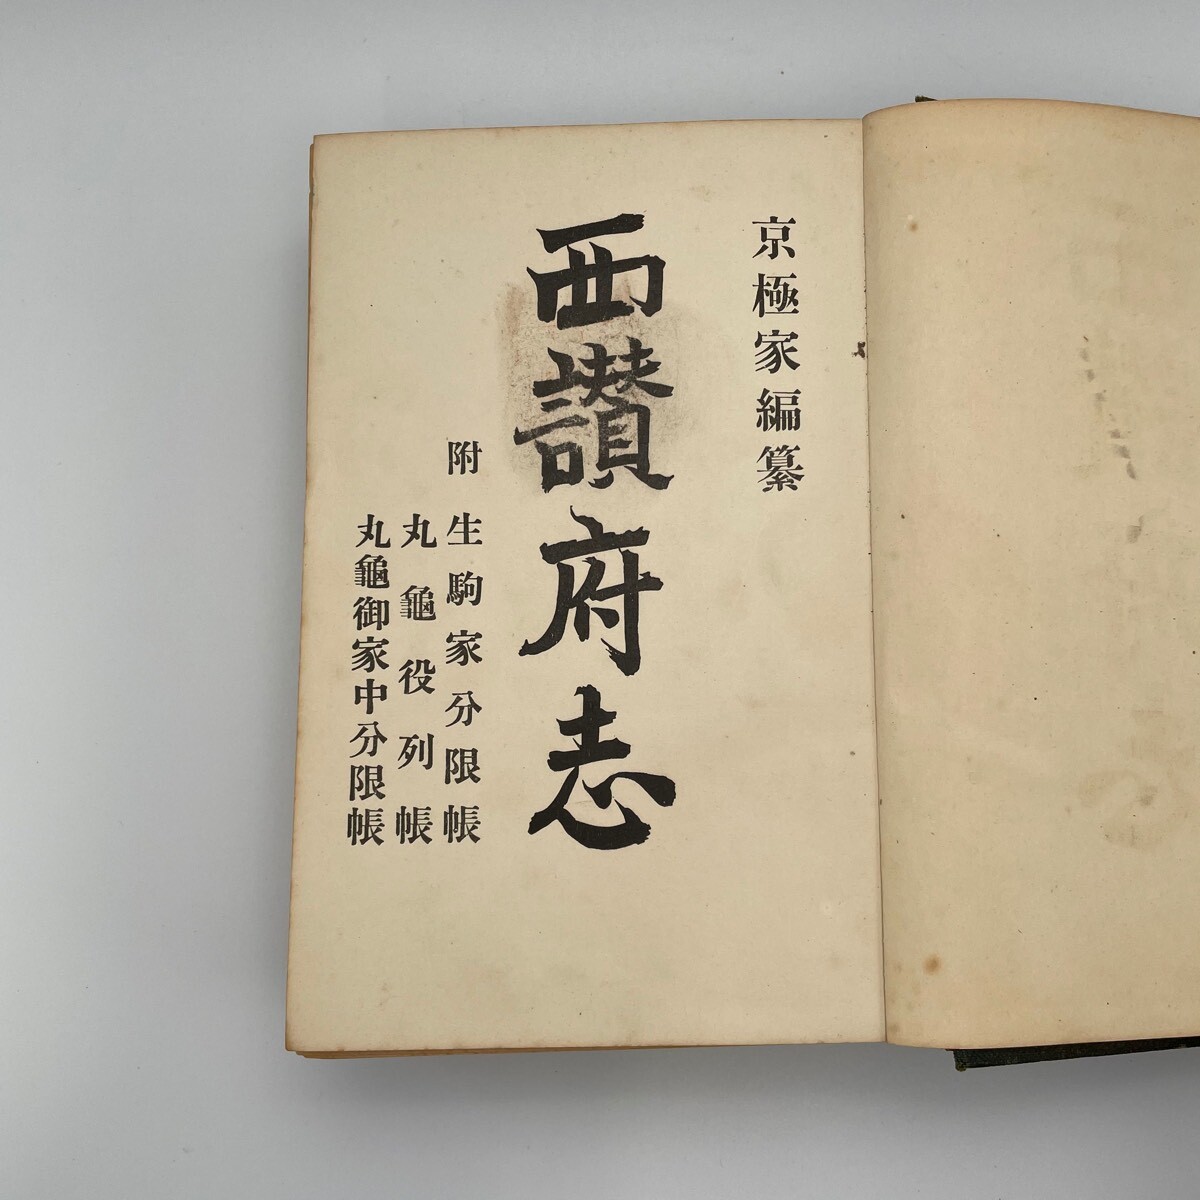 京極家編纂
西讃府志
附 生駒家分限帳
丸龜役列帳
丸龜御家中分限帳